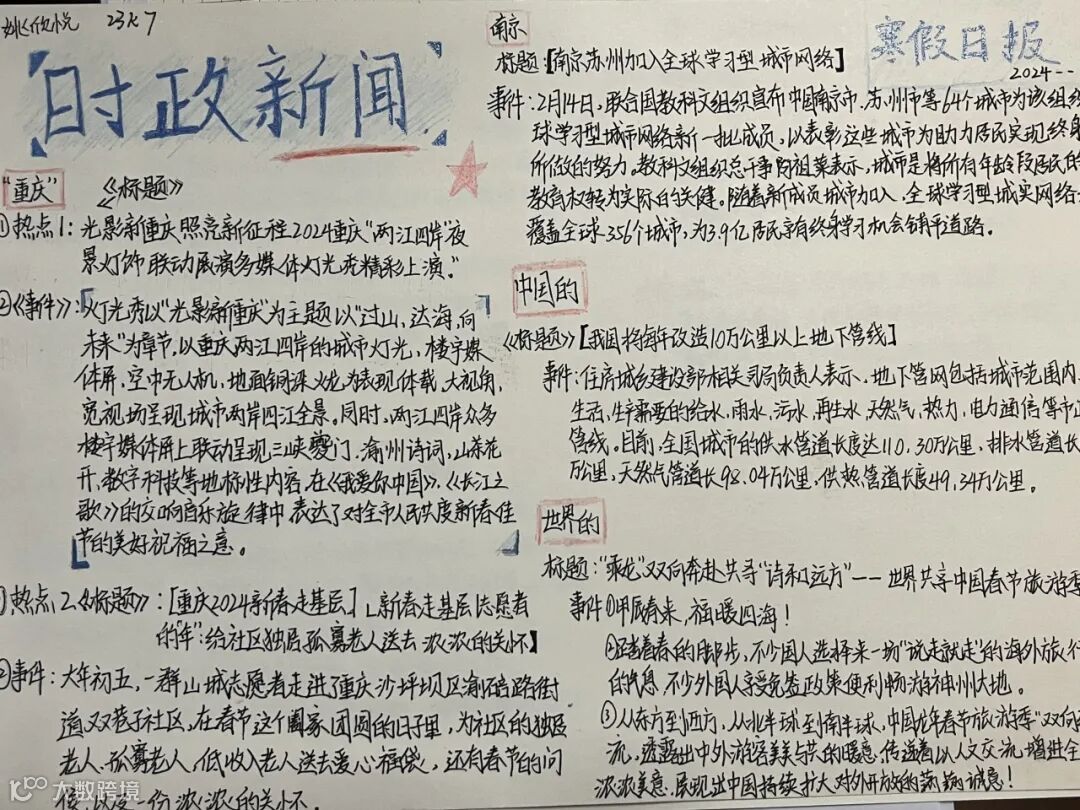 姚欣悦 23K7
时政新闻
"重庆" 《标题》
①热点1: 光影新重庆照亮新征程2024重庆"两江四岸"夜
景灯饰联动展演多媒体灯光秀精彩上演."
②《事件》: 灯光秀以"光影新重庆"为主题以"过山,达海,向
未来"为章节,以重庆两江四岸的城市灯光,楼宇媒
体屏,空中无人机,地面铜梁火龙为表现体裁,大视角,
宽视场呈现城市两岸四江全景。同时,两江四岸众多
楼宇媒体屏上联动呈现三峡夔门,渝州诗词,山茶花
开,数字科技等地标性内容,在《我爱你中国》,《长江之
歌》的交响音乐旋律中表达了对全市人民共度新春佳
节的美好祝福之意。
①热点2.《标题》: [重庆2024新春走基层]新春走基层志愿者
的"年":给社区独居孤寡老人送去浓浓的关怀】
②事件: 大年初五,一群山城志愿者走进了重庆沙坪坝区渝碚路街
道双巷子社区,在春节这个阖家团圆的日子里,为社区的独居
老人,孤寡老人,低收入老人送去爱心福袋,还有春节的问
一份浓浓的关怀.
南京
标题:[南京苏州加入全球学习型城市网络]
事件:2月14日,联合国教科文组织宣布中国南京市,苏州市等64个城市为该组织
球学习型城市网络新一批成员,以表彰这些城市为助力居民实现终身
所做的努力,教科文组织总干事阿祖莱表示,城市是将所有年龄段居民的
教育权转为实际的关健。随着新成员城市加入,全球学习型城实网络
覆盖全球356个城市,为3.9亿居民享有终身学习机会铺平道路。
寒假日报
2024--
中国的
《标题》[我国将每年改造10万公里以上地下管线]
事件:住房城乡建设部相关司局负责人表示,地下管网包括城市范围内,
生活,生产需要的给水,雨水,污水,再生水,天然气,热力,电力通信等市
管线。目前,全国城市的供水管道长度达110.30万公里,排水管道长
万公里,天然气管道长98.04万公里,供热管道长度49.34万公里。
世界的
标题:"乘龙"双向奔赴共寻"诗和远方"---世界共享中国春节旅游季
事件①甲辰春来,福暖四海!
②踏着春的脚步,不少国人选择来一场"说走就走"的海外旅行
的气息,不少外国人享受免签政策便利畅游神州大地。
③从东方到西方,从北半球到南半球,中国龙年春节旅游季"双向
流,透露出中外游客美美与共的暖意,传递着以人文交流,增进
浓浓美意,展现出中国持续扩大对外开放的满满诚意!
大数跨境